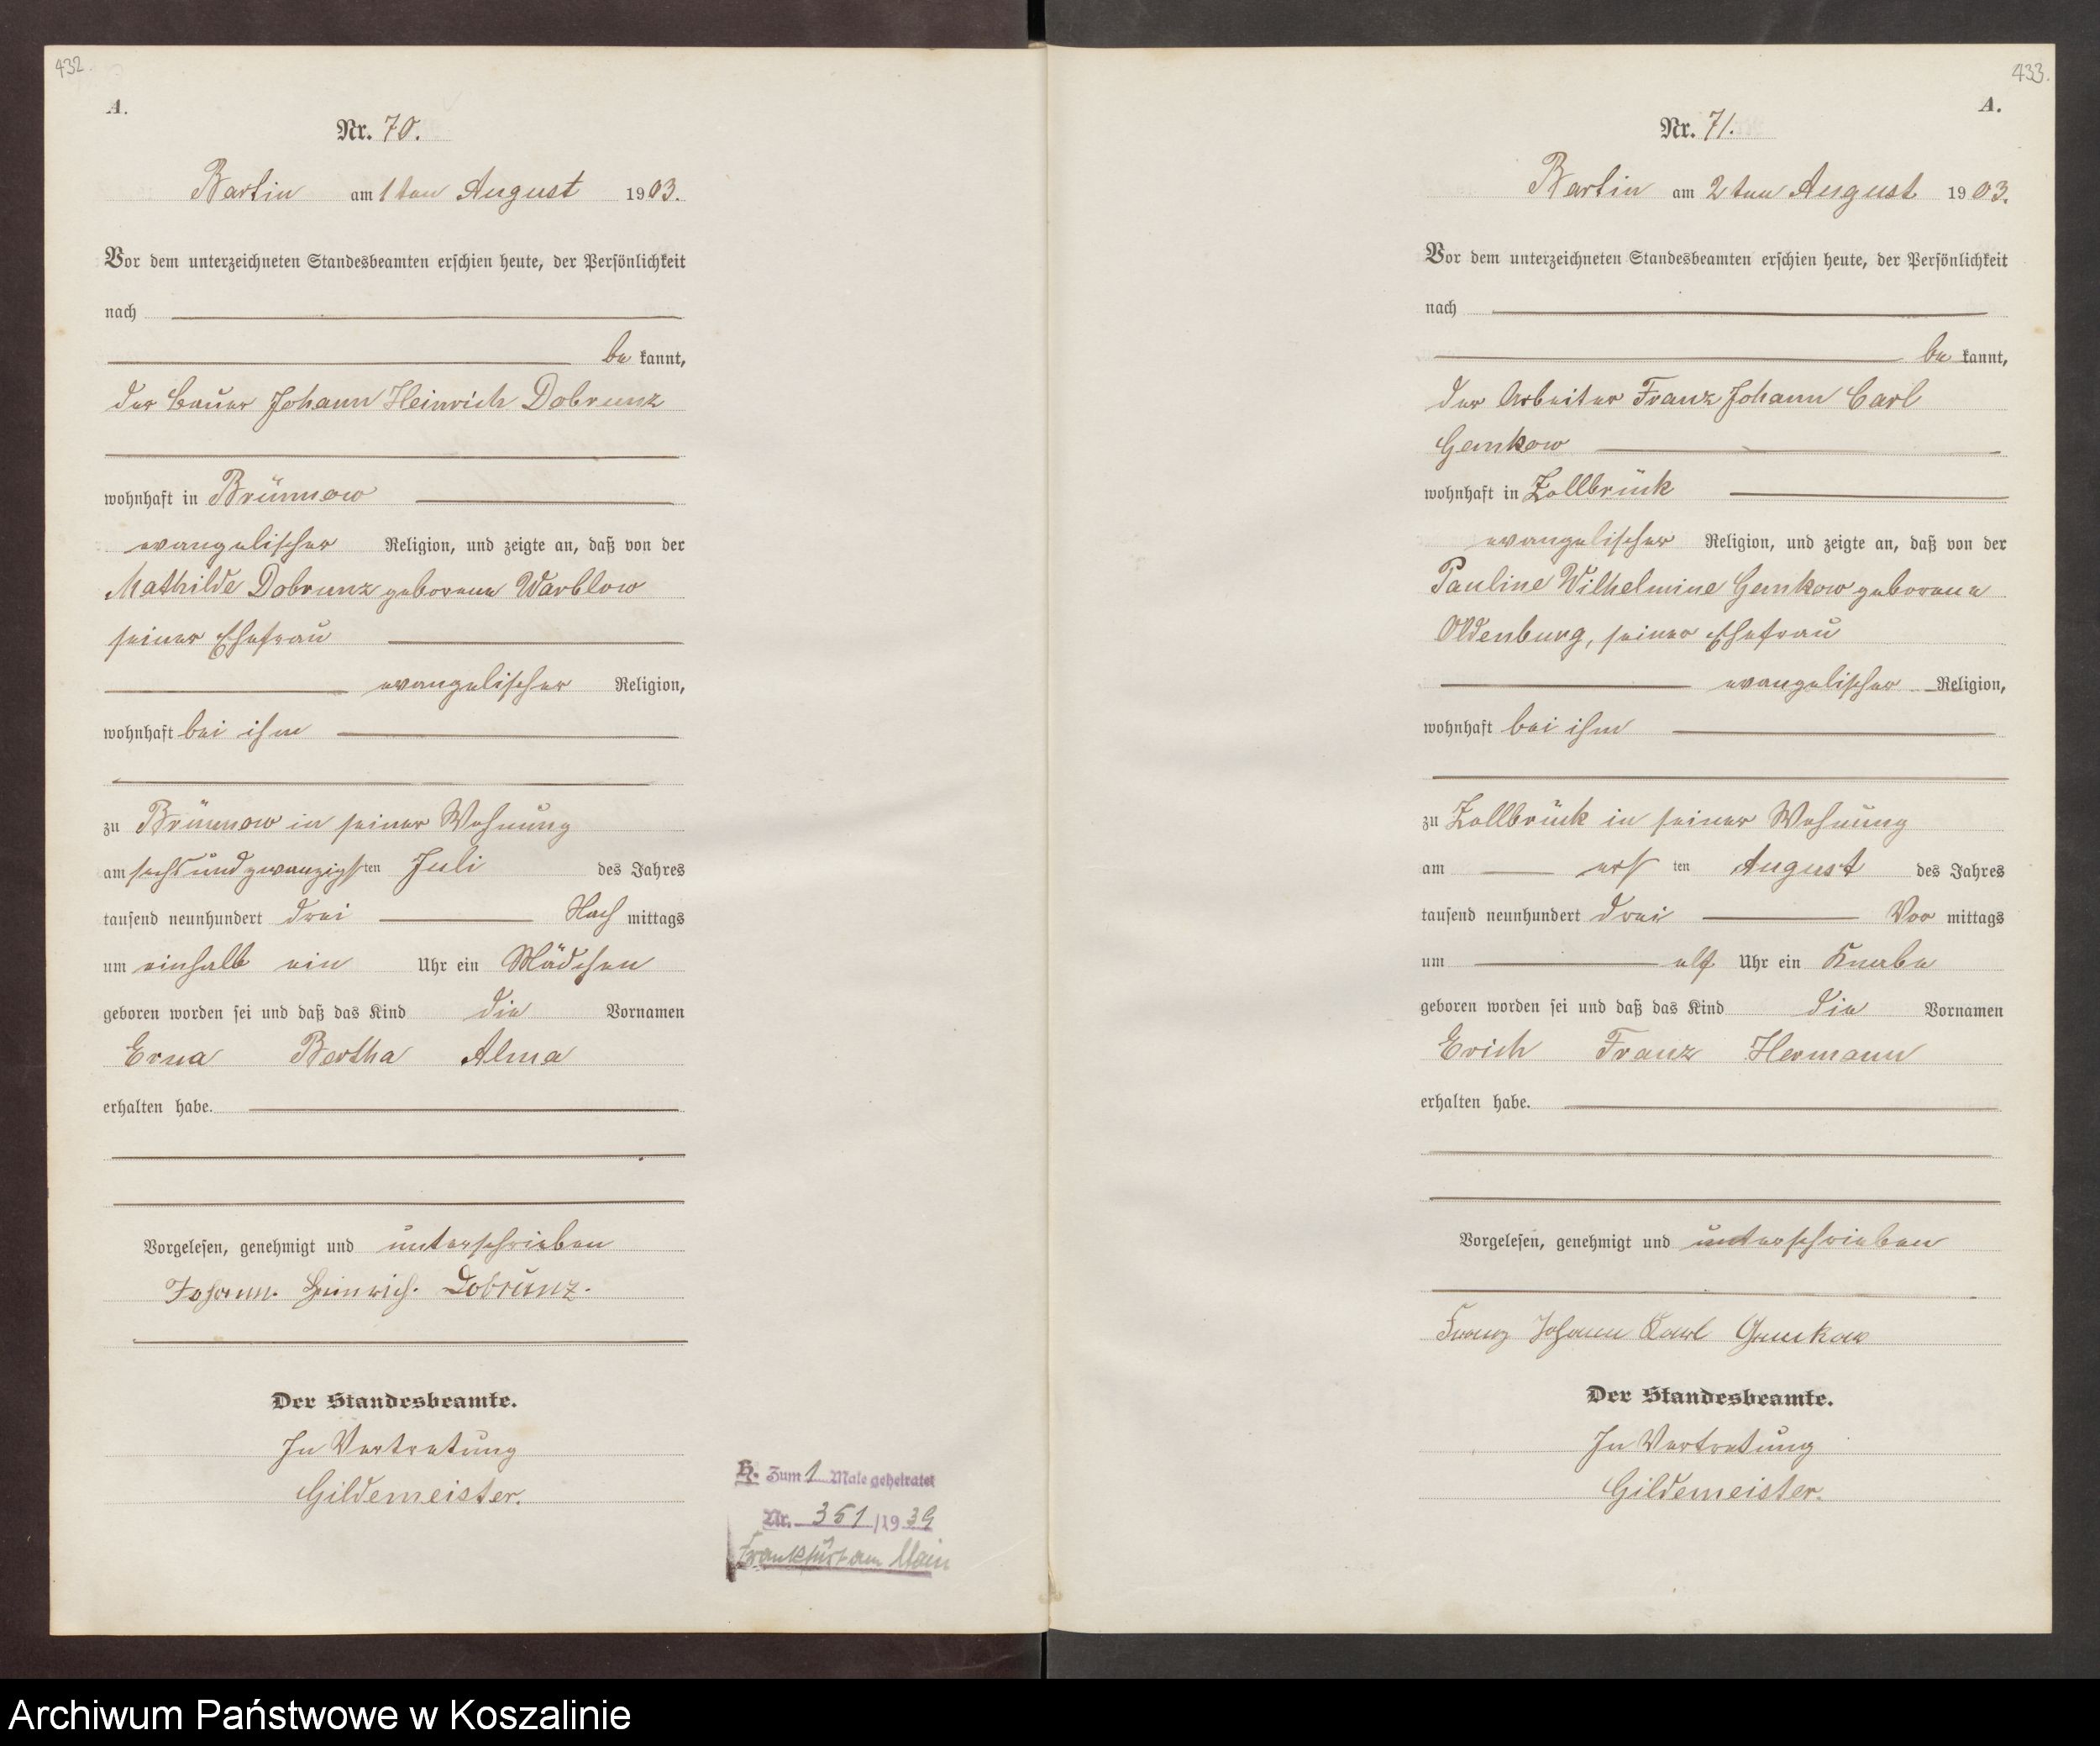 432.
A.
Nr. 70.
Bartin am 1ten August 1903.
Vor dem unterzeichneten Standesbeamten erschien heute, der Persönlichkeit
nach
be kannt,
der Bauer Johann Heinrich Dobrunz
wohnhaft in Brünnow
evangelischer Religion, und zeigte an, daß von der
Mathilde Dobrunz geborene Warblow
seiner Ehefrau
evangelischer Religion,
wohnhaft bei ihm
zu Brünnow in seiner Wohnung
am sechsundzwanzigsten Juli des Jahres
tausend neunhundert drei Nach mittags
um einhalb ein Uhr ein Mädchen
geboren worden sei und daß das Kind die Vornamen
Erna Bertha Alma
erhalten habe.
Vorgelesen, genehmigt und unterschrieben
Johann. Heinrich. Dobrunz.
Der Standesbeamte.
In Vertretung
Gildemeister.
H. Zum 1 Male geheiratet
Nr. 351/1939
Frankfurt am Main
433.
A.
Nr. 71.
Bartin am 2ten August 1903.
Vor dem unterzeichneten Standesbeamten erschien heute, der Persönlichkeit
nach
be kannt,
der Arbeiter Franz Johann Carl
Gemkow
wohnhaft in Zollbrück
evangelischer Religion, und zeigte an, daß von der
Pauline Wilhelmine Gemkow geborene
Oldenburg, seiner Ehefrau
evangelischer Religion,
wohnhaft bei ihm
zu Zollbrück in seiner Wohnung
am ersten August des Jahres
tausend neunhundert drei Vor mittags
um elf Uhr ein Knabe
geboren worden sei und daß das Kind die Vornamen
Erich Franz Hermann
erhalten habe.
Vorgelesen, genehmigt und unterschrieben
Franz Johann Carl Gemkow
Der Standesbeamte.
In Vertretung
Gildemeister.
Archiwum Państwowe w Koszalinie